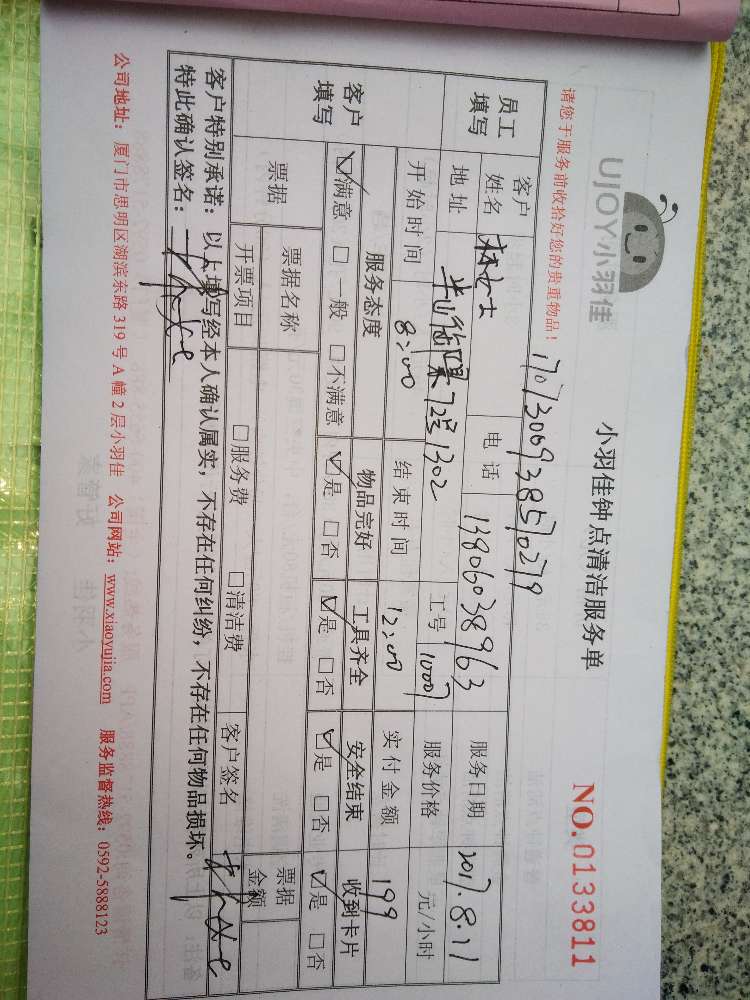 UJOY小羽佳
小羽佳钟点清洁服务单
NO.0133811
请您于服务前收拾好您的贵重物品！
1707306938570279
员工填写
客户姓名 林女士 电话 13806038963 服务日期 2017.8.11
地址 半山御景72号1302 工号 10007 服务价格 元/小时
开始时间 8:00 结束时间 12:00 实付金额 199
客户填写
服务态度 物品完好 工具齐全 安全结束 收到卡片
☑满意 □一般 □不满意 ☑是 □否 ☑是 □否 ☑是 □否 ☑是 □否
票据 票据名称 票据金额
开票项目 □服务费 □清洁费 客户签名
客户特别承诺：以上填写经本人确认属实，不存在任何纠纷，不存在任何物品损坏。
特此确认签名：
公司地址：厦门市思明区湖滨东路319号A幢2层小羽佳 公司网站：www.xiaoyujia.com 服务监督热线：0592-5888123